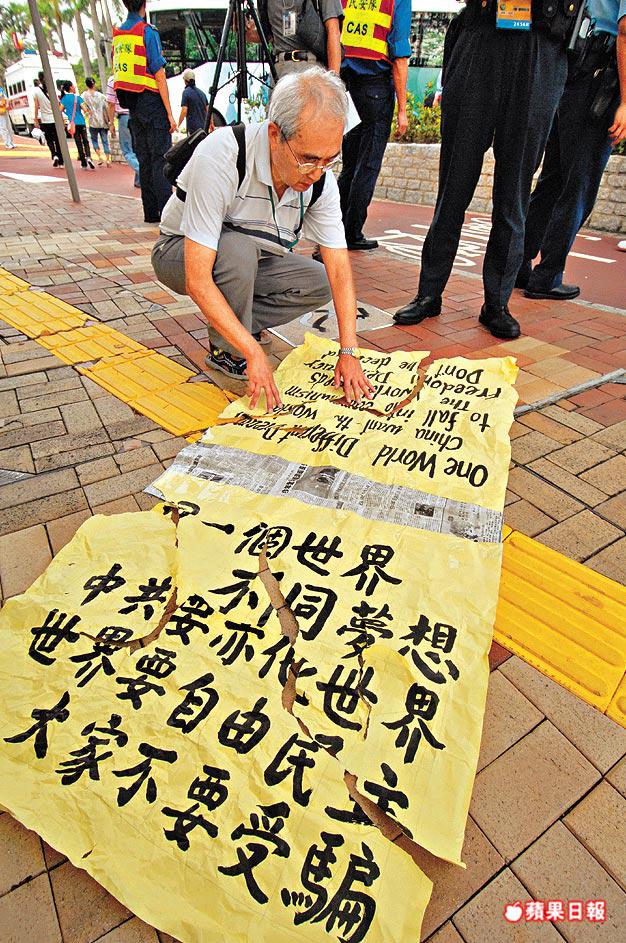 民安隊
CAS
民安隊
CAS
One World
Different Dreams
China want the World
to fall into communism
The world needs
Freedom Democracy
Don't be deceived
一個世界
不同夢想
中共要亦化世界
世界要自由民主
大家不要受騙
蘋果日報